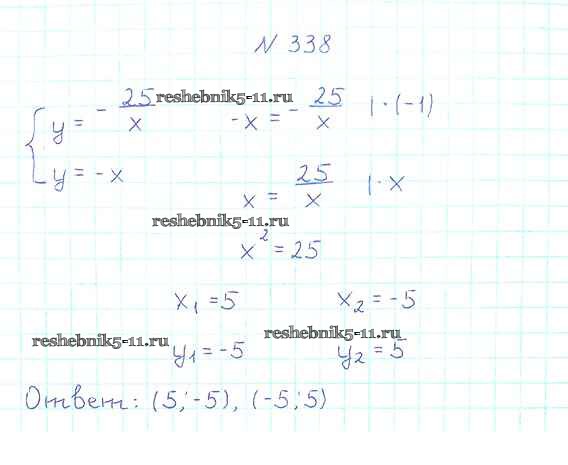 N 338
y = - 25/x   -x = - 25/x   | · (-1)
reshebnik5-11.ru
y = -x
x = 25/x   | · x
reshebnik5-11.ru
x² = 25
x₁ = 5   x₂ = -5
reshebnik5-11.ru   reshebnik5-11.ru
y₁ = -5   y₂ = 5
Ответ: (5; -5), (-5; 5)